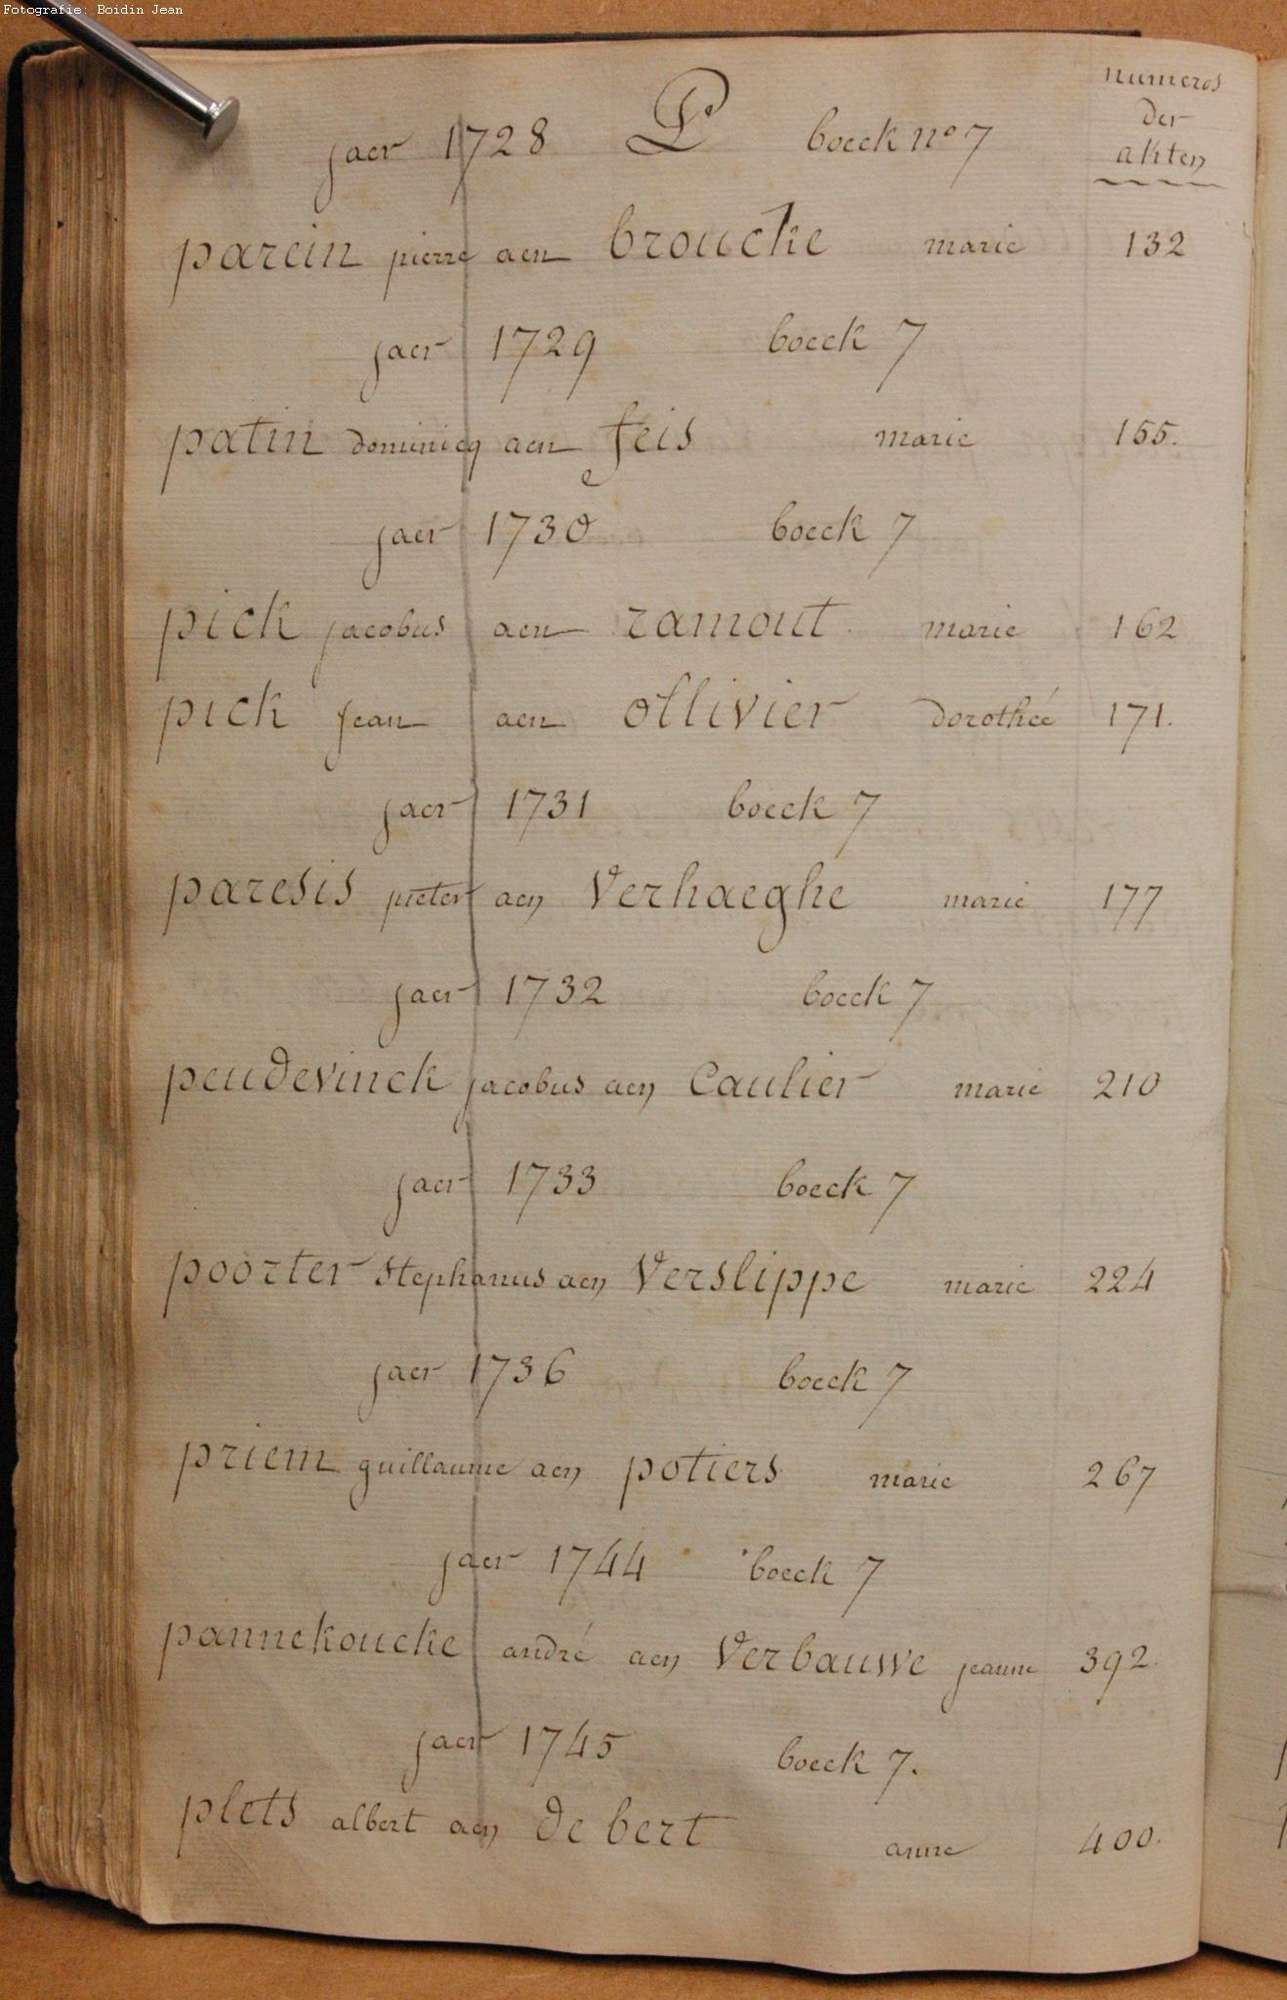 Fotografie: Boidin Jean
numeros
der
akten
jaer 1728 P boeck nº 7
parein pierre aen broucke marie 132
jaer 1729 boeck 7
patin dominicq aen feis marie 155.
jaer 1730 boeck 7
pick jacobus aen ramout marie 162
pick jean aen ollivier dorothée 171.
jaer 1731 boeck 7
paresis pieter aen Verhaeghe marie 177
jaer 1732 boeck 7
peudevinck jacobus aen Caulier marie 210
jaer 1733 boeck 7
poorter stephanus aen Verslippe marie 224
jaer 1736 boeck 7
priem guillaume aen potiers marie 267
jaer 1744 boeck 7
pannekoucke andré aen Verbauwe jeanne 392.
jaer 1745 boeck 7.
plets albert aen de bert anne 400.